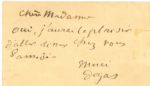 Chère Madame
oui, j'aurai le plaisir
d'aller dîner chez vous
samedi.
Merci
Degas